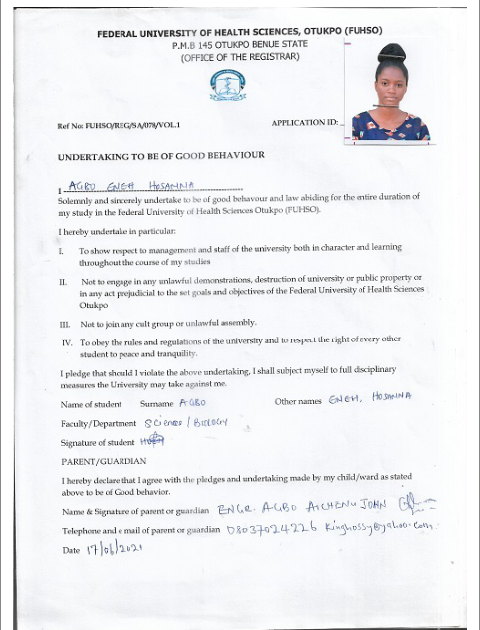 FEDERAL UNIVERSITY OF HEALTH SCIENCES, OTUKPO (FUHSO)
P.M.B 145 OTUKPO BENUE STATE
(OFFICE OF THE REGISTRAR)
Ref No: FUHSO/REG/SA/078/VOL.1
APPLICATION ID:
UNDERTAKING TO BE OF GOOD BEHAVIOUR
I AGBO ENEH HOSANNA
Solemnly and sincerely undertake to be of good behavour and law abiding for the entire duration of
my study in the Federal University of Health Sciences Otukpo (FUHSO).
I hereby undertake in particular:
I. To show respect to management and staff of the university both in character and learning
throughout the course of my studies
II. Not to engage in any unlawful demonstrations, destruction of university or public property or
in any act prejudicial to the set goals and objectives of the Federal University of Health Sciences
Otukpo
III. Not to join any cult group or unlawful assembly.
IV. To obey the rules and regulations of the university and to respect the right of every other
student to peace and tranquility.
I pledge that should I violate the above undertaking, I shall subject myself to full disciplinary
measures the University may take against me.
Name of student Surname AGBO Other names ENEH, HOSANNA
Faculty/Department Sciences/BIOLOGY
Signature of student
PARENT/GUARDIAN
I hereby declare that I agree with the pledges and undertaking made by my child/ward as stated
above to be of Good behavior.
Name & Signature of parent or guardian ENGR. AGBO AICHENU JOHN
Telephone and email of parent or guardian 08037024226 Kinghossy@yahoo.com.
Date 17/06/2021